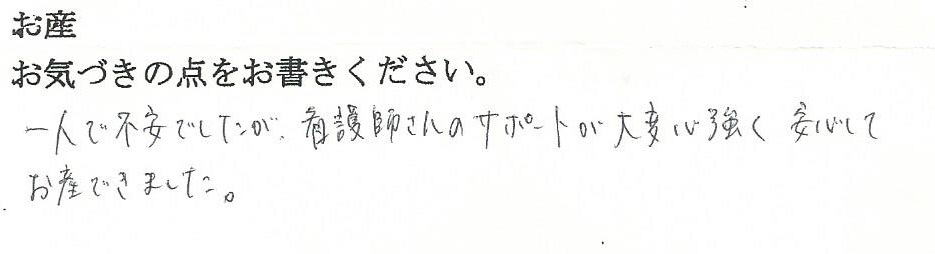 お産
お気づきの点をお書きください。
一人で不安でしたが、看護師さんのサポートが大変心強く安心して
お産できました。